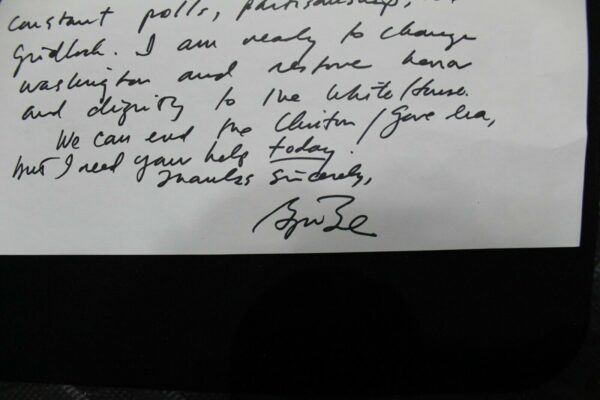 constant polls, partisanship,
gridlock. I am ready to change
washington and restore honor
and dignity to the White House.
We can end the Clinton/Gore era,
but I need your help today.
Thanks Sincerely,